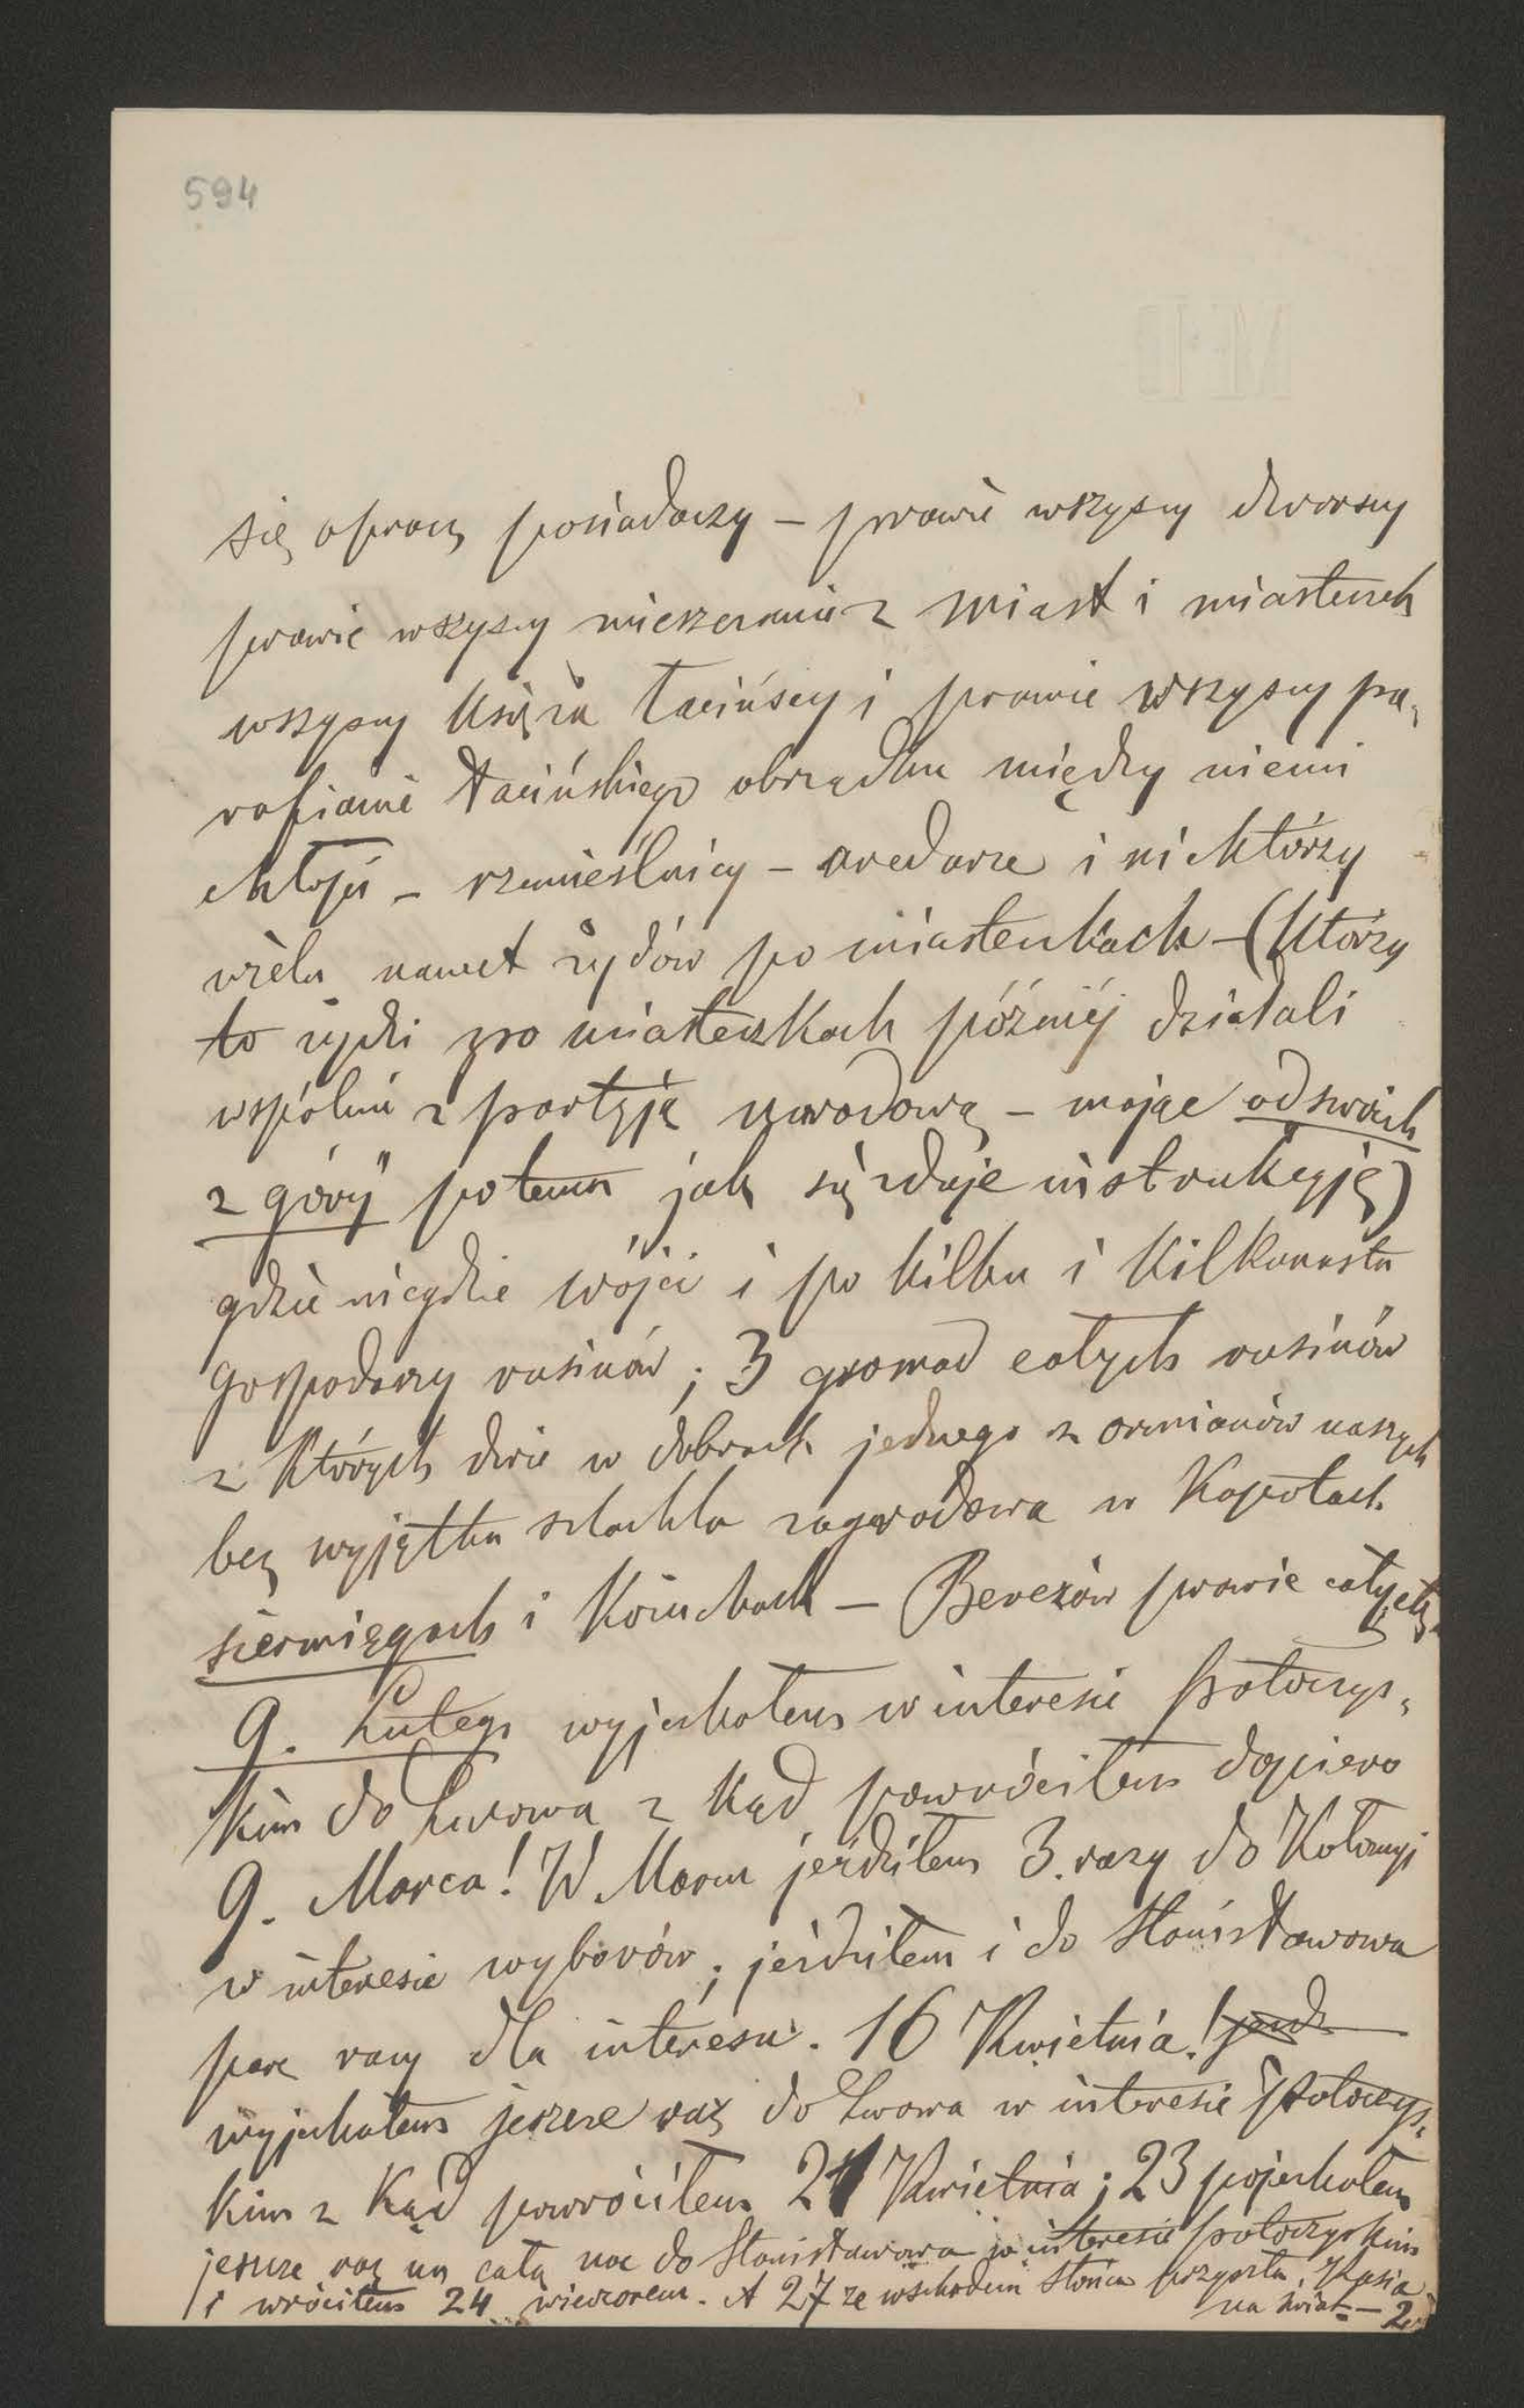 594
się oprócz posiadaczy – prawie wszyscy dworscy
prawie wszyscy mieszczanie z miast i miasteczek
wszyscy księża łacińscy i prawie wszyscy pa„
rafianie łacińskiego obrządku między niemi
chłopi – rzemieślnicy – aredarze i niektórzy
wielu nawet żydów po miasteczkach – (którzy
to żydki po miasteczkach później działali
wspólnie z partyją narodową – mając od swoich
z góry" potemu jak się zdaje instrukcyję)
gdzie niegdzie wójci i po kilku i kilkunastu
gospodarzy rusinów; 3 gromad całych rusinów
z których dwie w dobrach jednego z ormianów naszych
bez wyjątku szlachta zagrodowa w kapotach
siermięgach i kożuchach – Berezów prawie całych.
9. Lutego wyjechałem w interesie potoczys„
kim do Lwowa z kąd powróciłem dopiero
9. Marca! W Marcu jeździłem 3. razy do Kołomyi
w interesie wyborów; jeździłem i do Stanisławowa
parę razy dla interesu. 16 Kwietnia!
wyjechałem jeszcze raz do Lwowa w interesie potoczys„
kim z kąd powróciłem 21 Kwietnia; 23 pojechałem
jeszcze raz na całą noc do Stanisławowa w interesie potoczyskim
i wróciłem 24 wieczorem. A 27 ze wschodem słońca przyszła Kasia
na świat – 2